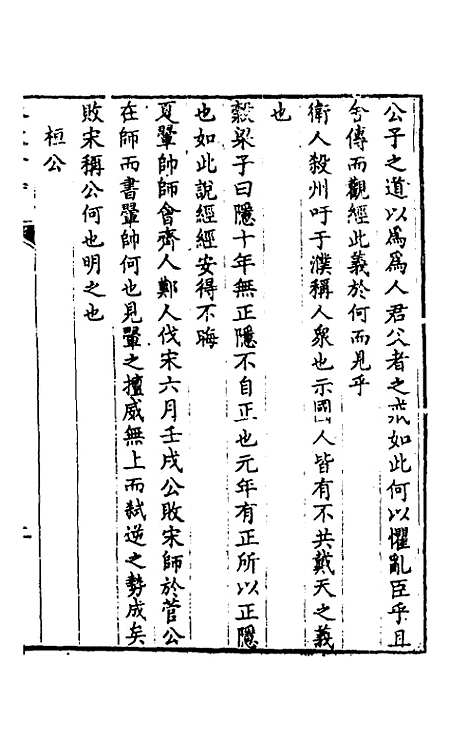 公子之道以為為人君父者之戒如此何以懼亂臣乎且
舍傳而觀經此義於何而見乎
衛人殺州吁于濮稱人眾也示國人皆有不共戴天之義
也
穀梁子曰隱十年無正隱不自正也元年有正所以正隱
也如此說經經安得不晦
夏翬帥師會齊人鄭人伐宋六月壬戌公敗宋師於菅公
在師而書翬帥何也見翬之擅威無上而弒逆之勢成矣
敗宋稱公何也明之也
桓公